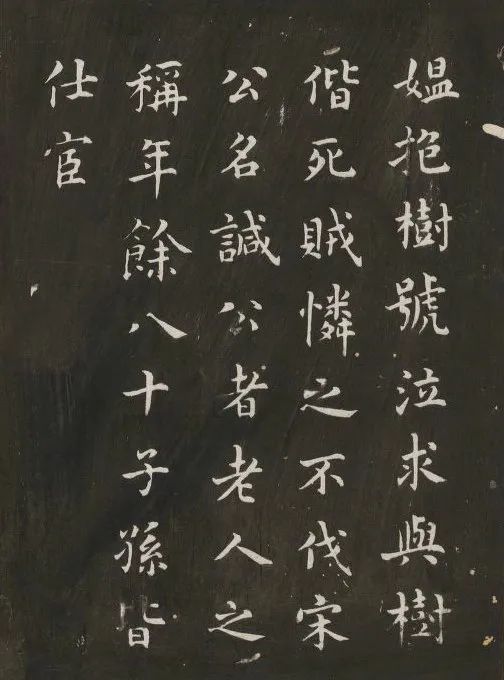 媪抱樹號泣求與樹
偕死賊憐之不伐宋
公名誠公者老人之
稱年餘八十子孫皆
仕宦